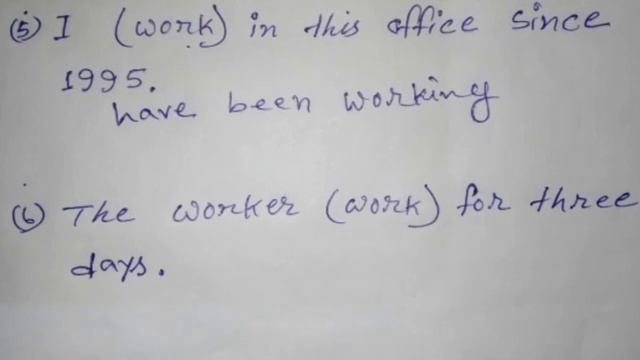 (5) I (work) in this office since
1995.
have been working
(6) The worker (work) for three
days.